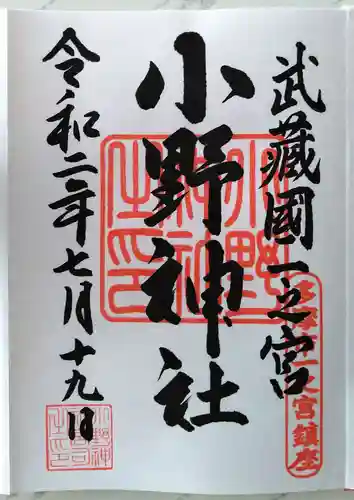 武藏國一之宮
多摩市一之宮鎮座
小野神社
令和二年七月十九日